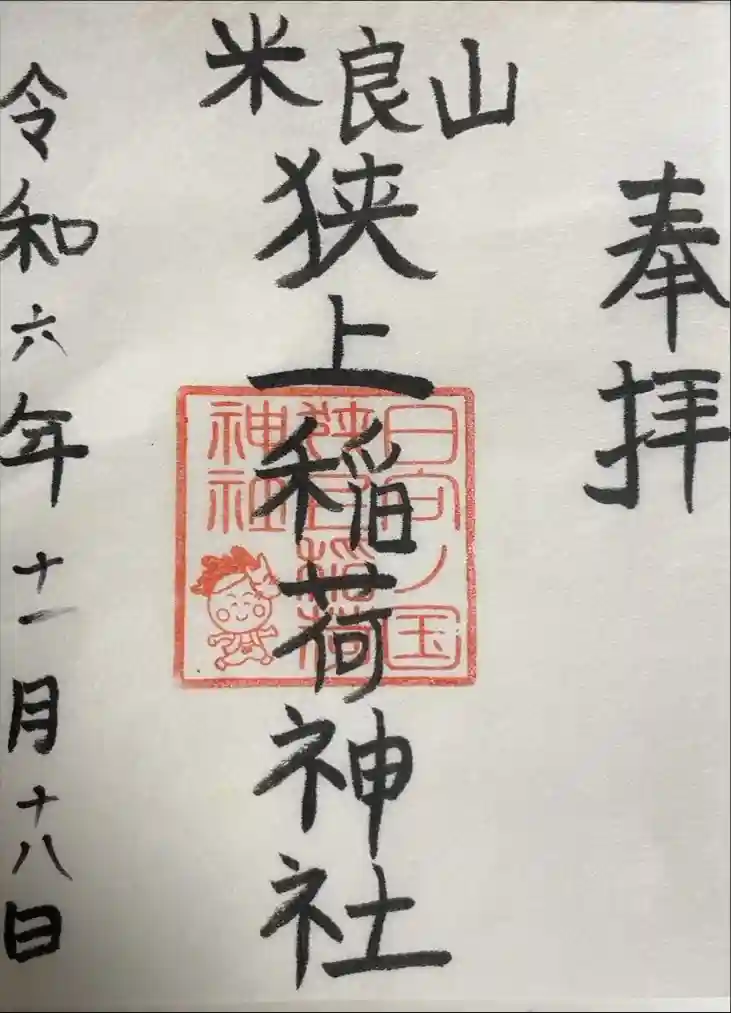 奉拝
米良山
狭上稲荷神社
日向ノ国
狭上稲荷
神社
令和六年十一月十八日